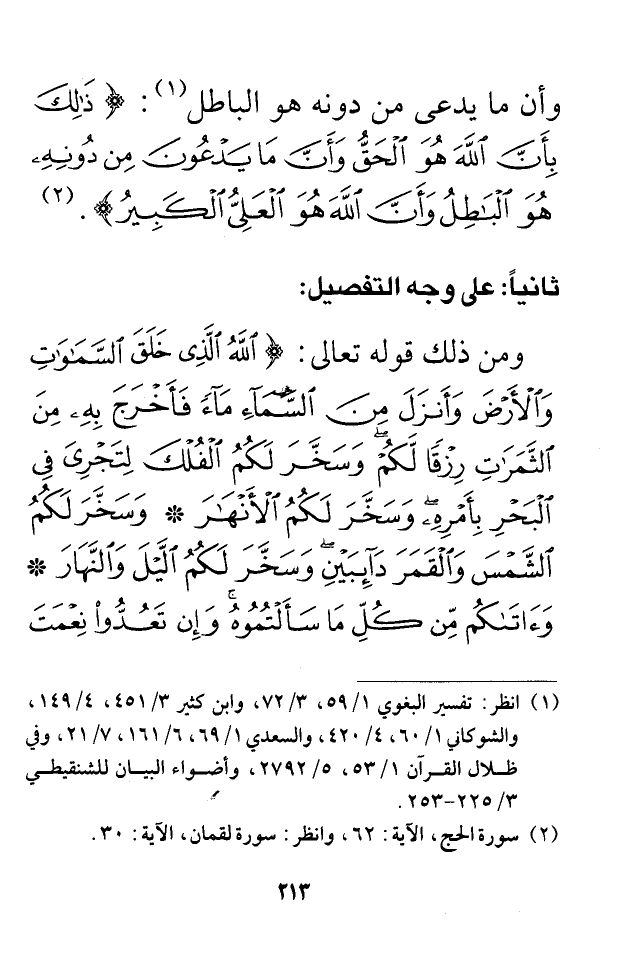 وأن ما يدعى من دونه هو الباطل(١): ﴿ ذَٰلِكَ
بِأَنَّ ٱللَّهَ هُوَ ٱلْحَقُّ وَأَنَّ مَا يَدْعُونَ مِن دُونِهِۦ
هُوَ ٱلْبَٰطِلُ وَأَنَّ ٱللَّهَ هُوَ ٱلْعَلِىُّ ٱلْكَبِيرُ ﴾.(٢)
ثانياً: على وجه التفصيل:
ومن ذلك قوله تعالى: ﴿ ٱللَّهُ ٱلَّذِى خَلَقَ ٱلسَّمَٰوَٰتِ
وَٱلْأَرْضَ وَأَنزَلَ مِنَ ٱلسَّمَآءِ مَآءً فَأَخْرَجَ بِهِۦ مِنَ
ٱلثَّمَرَٰتِ رِزْقًا لَّكُمْ ۖ وَسَخَّرَ لَكُمُ ٱلْفُلْكَ لِتَجْرِىَ فِى
ٱلْبَحْرِ بِأَمْرِهِۦ ۖ وَسَخَّرَ لَكُمُ ٱلْأَنْهَٰرَ * وَسَخَّرَ لَكُمُ
ٱلشَّمْسَ وَٱلْقَمَرَ دَآئِبَيْنِ ۖ وَسَخَّرَ لَكُمُ ٱلَّيْلَ وَٱلنَّهَارَ *
وَءَاتَىٰكُم مِّن كُلِّ مَا سَأَلْتُمُوهُ ۚ وَإِن تَعُدُّوا۟ نِعْمَتَ
(١) انظر: تفسير البغوي ١/ ٥٩، ٣/ ٧٢، وابن كثير ٣/ ٤٥١، ٤/ ١٤٩،
والشوكاني ١/ ٦٠، ٤/ ٤٢٠، والسعدي ١/ ٦٩، ٦/ ١٦١، ٧/ ٢١، وفي
ظلال القرآن ١/ ٥٣، ٥/ ٢٧٩٢، وأضواء البيان للشنقيطي
٣/ ٢٢٥-٢٥٣.
(٢) سورة الحج، الآية: ٦٢، وانظر: سورة لقمان، الآية: ٣٠.
٢١٣